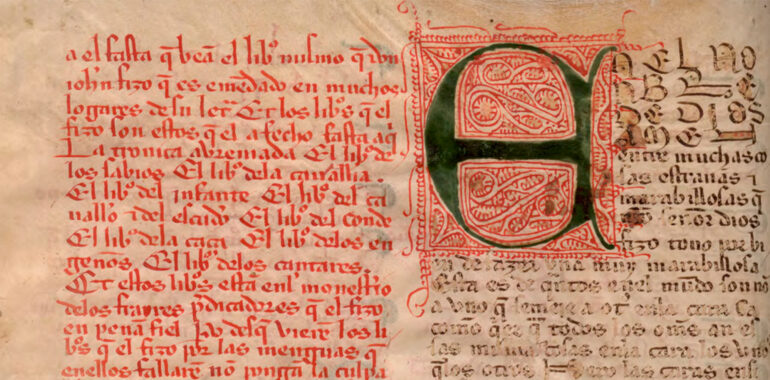 a el fasta q̄ beā el lib̾o mismo q̄ don
ioh̄n fizo q̄ es emēdado en muchos
logares de su letr̄ Et los lib̾os q̄ el
fizo son estos q̄ el a fecho fasta aq̄
La cronica abreuiada El lib̾o de
los sabios El lib̾o dela caualłia
El lib̾o del infante El lib̾o del ca
uallo ⁊ del escudo El lib̾o del conde
El lib̾o dela caça El lib̾o delos en
genos El lib̾o delos cantares
Et estos lib̾os esta enl monesťio
delos frayres p̄dicadores q̄ el fizo
en pena fiel p̄o desq̄ vierē los li
b̾os q̄ el fizo por las menguas q̄
enellos fallarē nō pongā la culpa
EN EL NO
NBRE
DE DIOS
AMEL
entre muchas co
sas estranas ⁊
marabillosas q̄
señor dios
fizo touo por bi
en de fazer vna muy marabillosa
Esta es de quātos enel mūdo son nō
a vno q̄ semeje a ot̾ enla cara Ca
como q̄er q̄ todos los om̄s an es
sas mismas cosas enla cara los vno
q̄ los otros pero las caras ensi